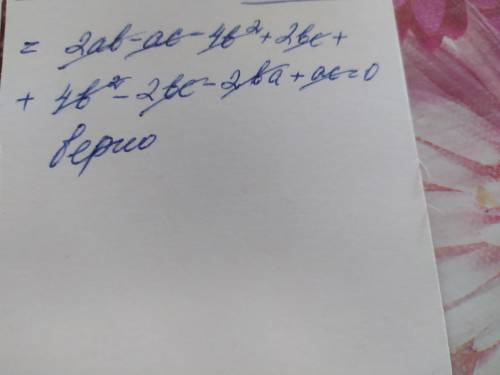 = 2ab - ac - 4b² + 2bc +
+ 4b² - 2bc - 2ba + ac = 0
верно